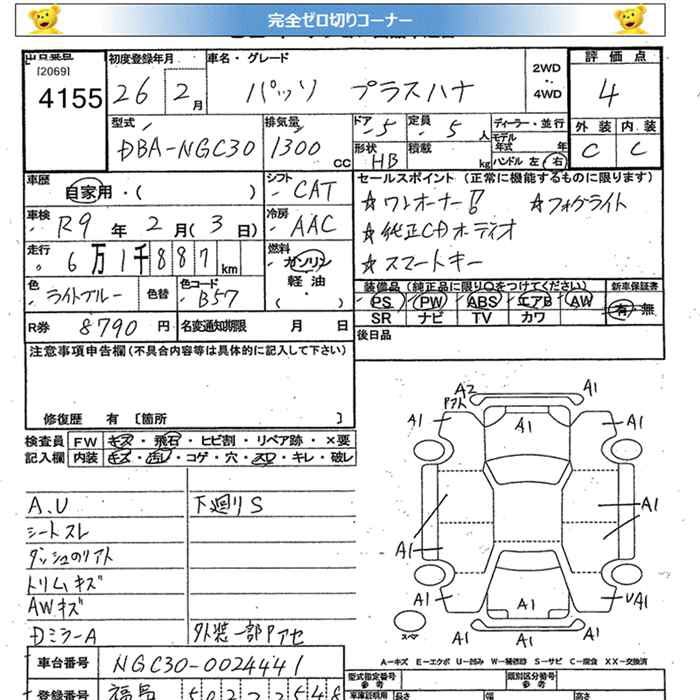 完全ゼロ切りコーナー
出品番号 初度登録年月 車名・グレード 評価点
[2069]
4155 26 2月 パッソ プラスハナ 2WD・4WD 4
型式 排気量 ドア 定員 ディーラー・並行 外装 内装
DBA-NGC30 1300cc 5 5人 モデル年式 年 C C
形状 HB 積載 kg ハンドル 左 右
車歴 自家用・( ) シフト CAT セールスポイント(正常に機能するものに限ります)
車検 R9年2月(3日) 冷房 AAC ☆ワンオーナー ☆フォグライト
☆純正CDオーディオ
走行 6万1千887km 燃料 ガソリン 軽油・( ) ☆スマートキー
色 ライトブルー 色替 色コード B57 装備品(純正品に限り○をつけてください) 新車保証書
PS PW ABS エアB AW 有・無
SR ナビ TV カワ
R券 8790円 名変通知期限 月 日 後日品
注意事項申告欄(不具合内容等は具体的に記入して下さい)
修復歴 有 [箇所 ]
検査員 FW キズ・飛石・ヒビ割・リペア跡・×要
記入欄 内装 キズ・汚レ・コゲ・穴・スレ・キレ・破レ
A.U 下廻りS
シートスレ
ダッシュのリアト
トリムキズ
AWキズ
DミラーA 外装一部Pアセ
A2 A1
アト
A1 A1 A1
A1 A1
A1 A1 A1 UA1
スペア A1 A1
A−キズ E−エクボ U−凹み W−補修跡 S−サビ C−腐食 XX−交換済
車台番号 NGC30-0024441 型式指定番号 参考 類別区分番号 参考
登録番号 福島 502 車庫証明用 長さ 幅 高さ